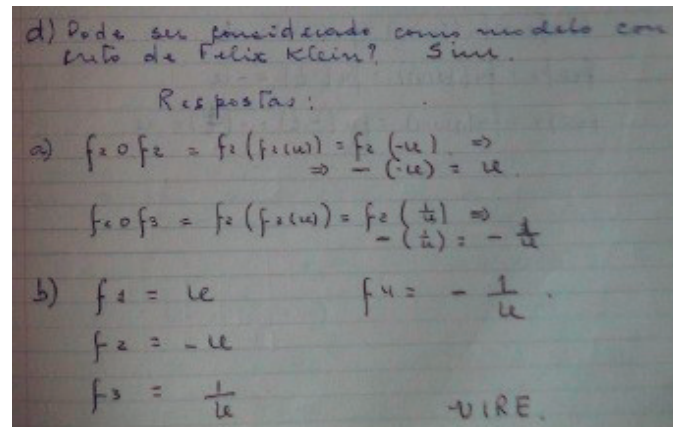 d) Pode ser considerado como modelo con
creto de Felix Klein? Sim.
Respostas:
a) f2 o f2 = f2 (f2(u)) = f2 (-u) ⇒
⇒ - (-u) = u.
f2 o f3 = f2 (f3(u)) = f2 (1/u) ⇒
- (1/u) = - 1/u
b) f1 = u f4 = - 1/u .
f2 = -u
f3 = 1/u
VIRE.